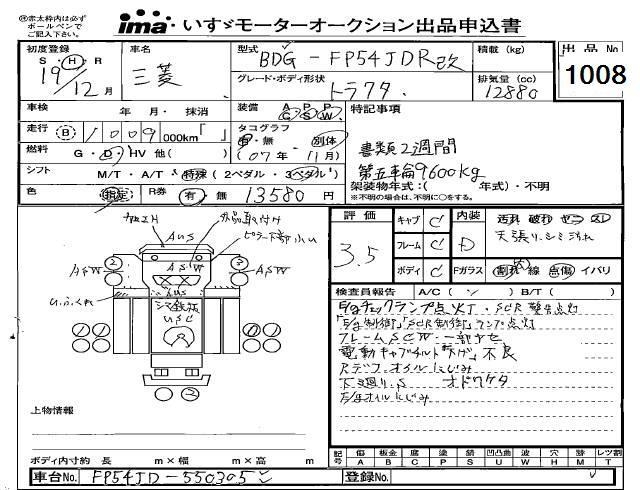 ㊟赤太枠内は必ず
ボールペンで
ご記入下さい。
ima いすゞモーターオークション出品申込書
初度登録 S・H・R 19/12月
車名 三菱
型式 BDG-FP54JDR改
積載(kg)
出品No. 1008
グレード・ボディ形状 トラクタ
排気量(cc) 12880
車検 年 月・抹消
装備 A C P S P W
特記事項
走行 B 1009 000km「 」
タコグラフ 有・無 別体 (07年 11月)
書類2週間
燃料 G・D・HV 他( )
第五輪9600kg
シフト M/T・A/T 特殊(2ペダル・3ペダル)
架装物年式:( 年式)・不明
※不明の場合は、不明に○をする。
色 指定 R券 有・無 13580円
評価 3.5
キャブ C 内装 D
フレーム C
ボディ C Fガラス 割れ 線 点傷 イバリ
天張りシミ汚れ
検査員報告 A/C( ) B/T( )
E/gチェックランプ点灯・SCR警告灯
「E/g制御」「SCR制御」ランプ点灯
フレームSCW・一部サビ
電動キャブチルト「下げ」不良
Rデフ・オイルにじみ
下廻り.S オドワケタ
E/gオイルにじみ
ASW ASW
AUS
ASW
シマ鉄板
USC
上物情報
ボディ内寸約 長 m×幅 m×高 m
記号 傷 A 板金 B 腐 C 塗 P 錆 S 凹凸曲 U 波 W 穴 H 跡 M レツ割 T
車台No. FP54JD-550305
登録No.